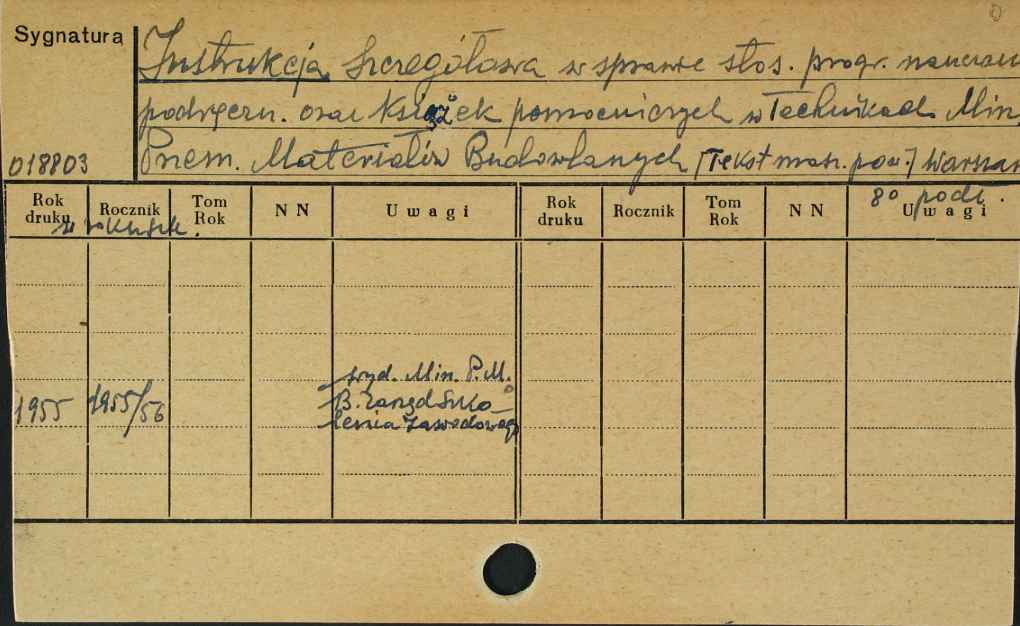 Sygnatura
Instrukcja Szczegółowa w sprawie stos. progr. nauczan
podręczn. oraz Książek pomocniczych w Technikach Min.
018803 Przem. Materiałów Budowlanych [Tekst masz. pow.] Warszaw
80 podł.
Rok druku Rocznik Tom Rok NN Uwagi Rok druku Rocznik Tom Rok NN Uwagi
wyd. Min. P.M.
1955 1955/56 B. Zarząd Szko-
lenia Zawodowego